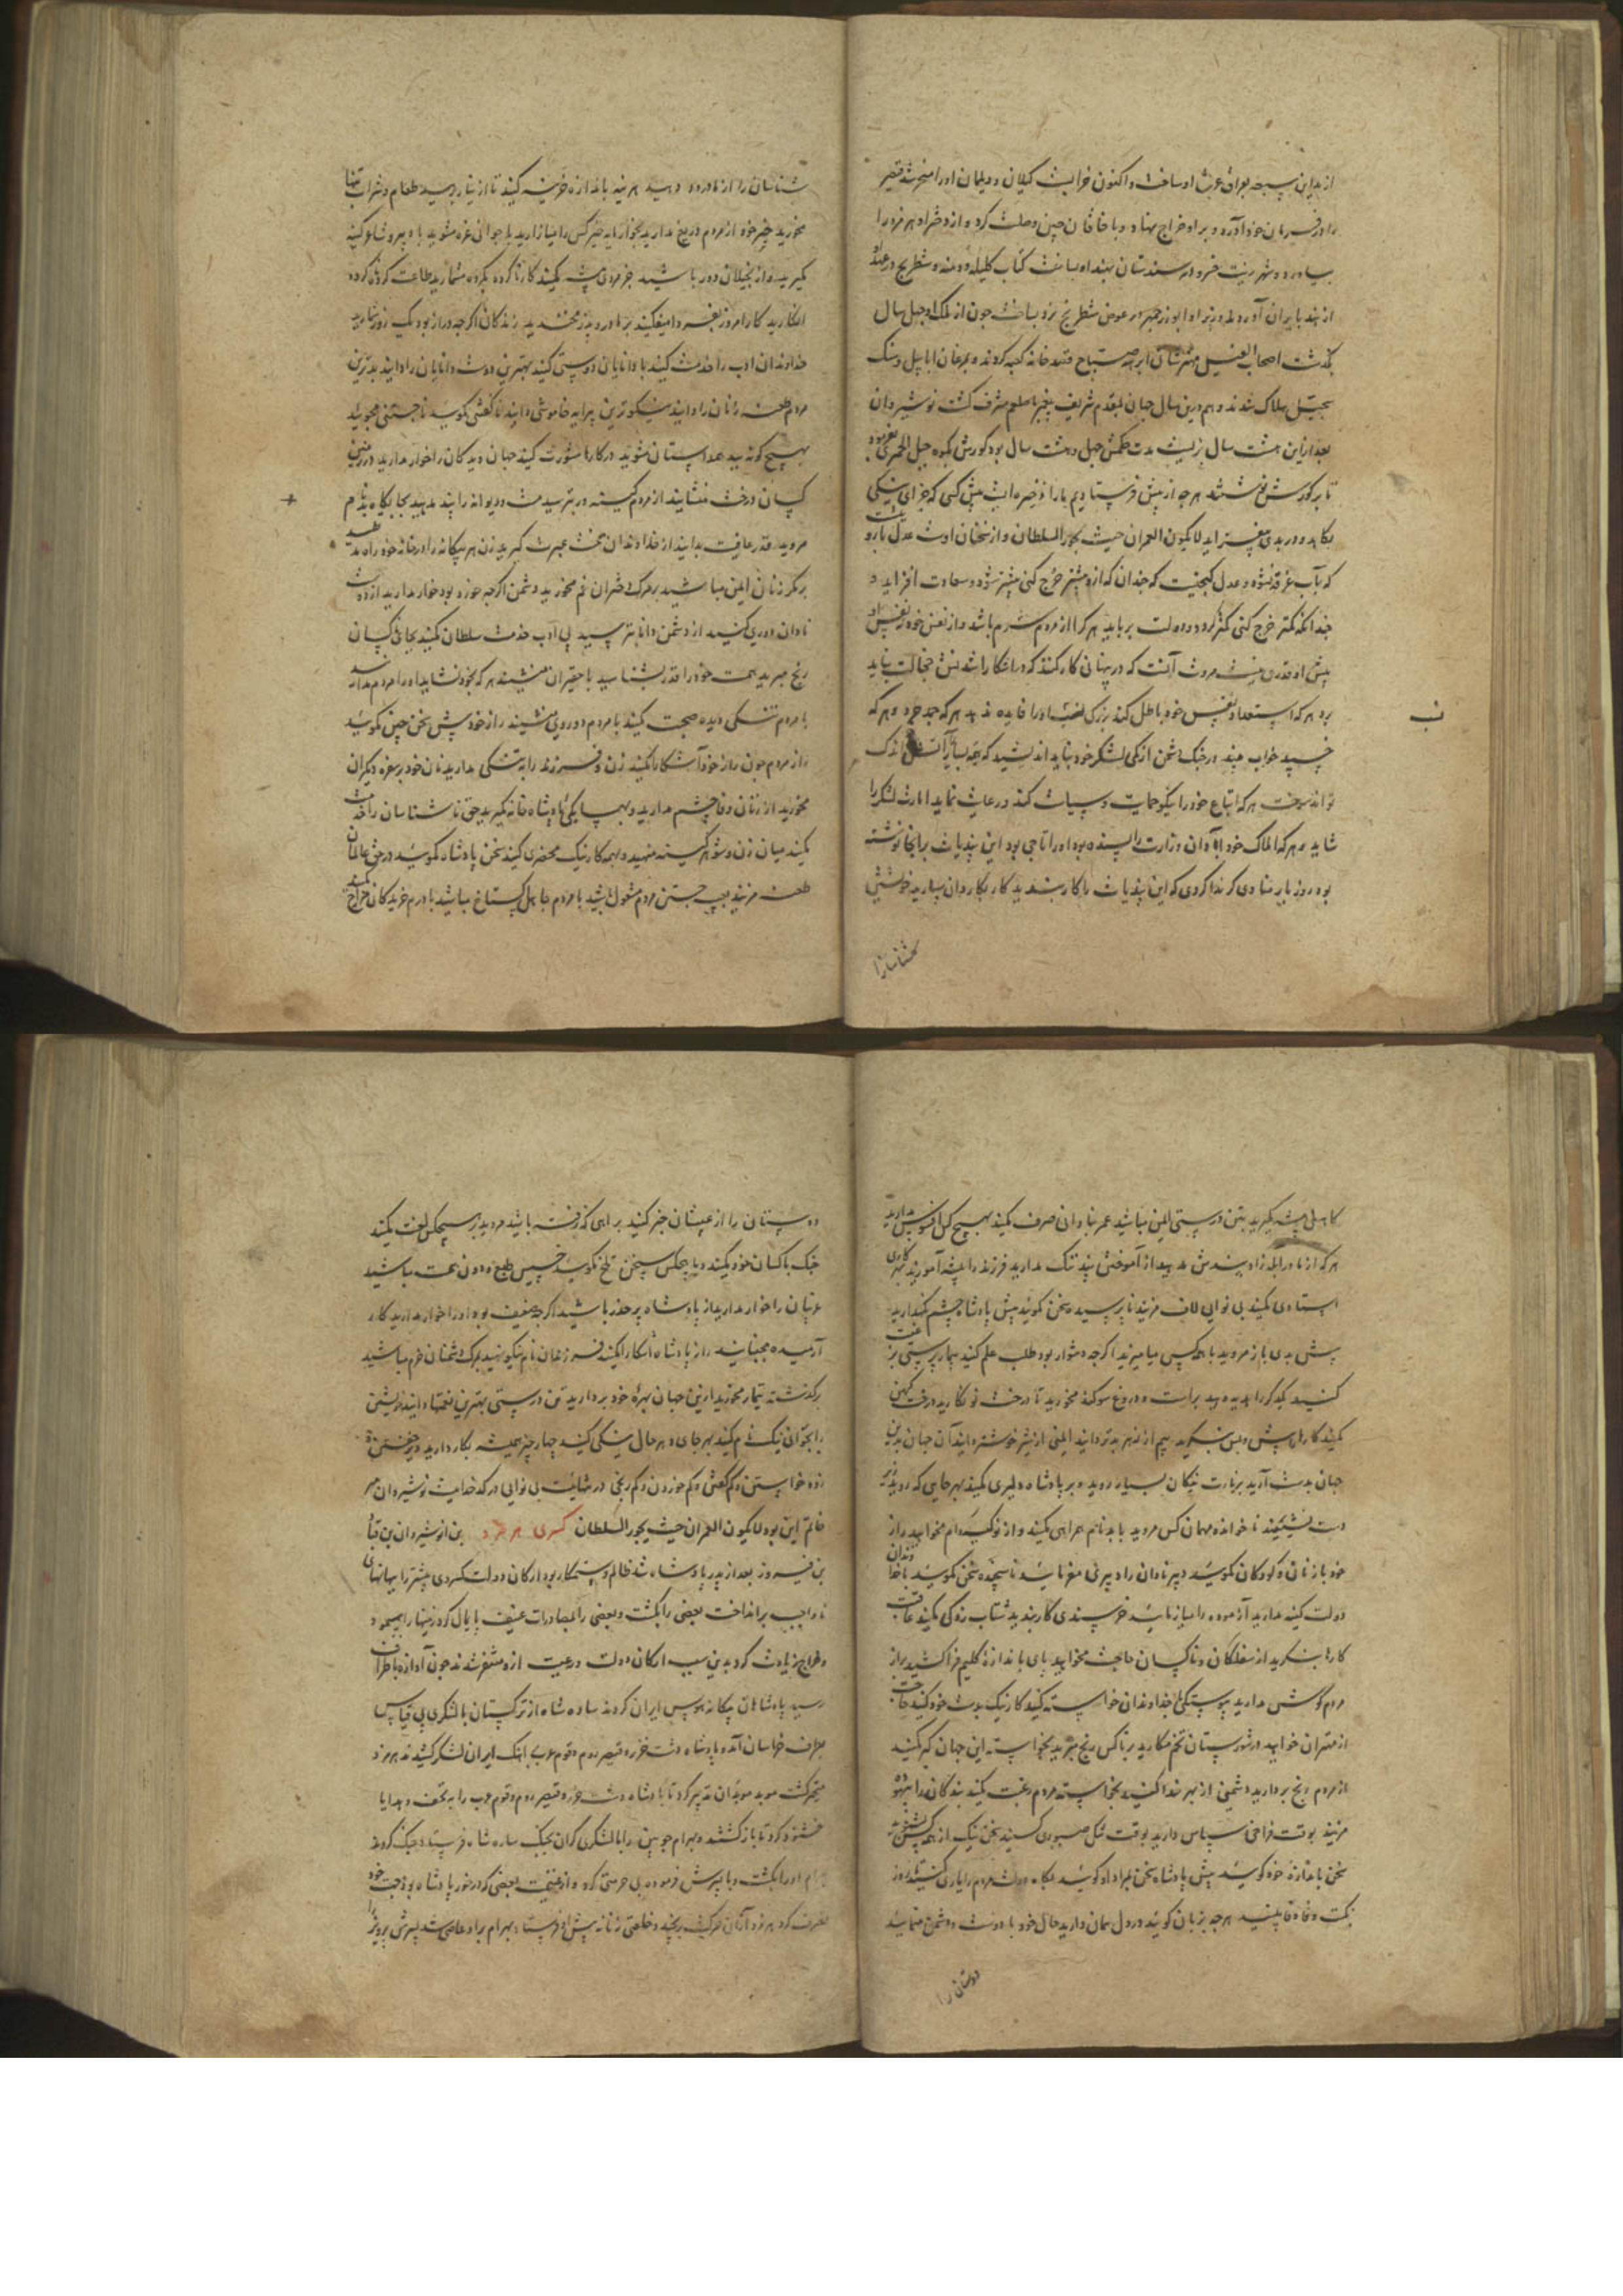 از مداین سبعه بعراق عرب او ساخت و اکنون خرابست کیلان و دیلمان او را مسخر شد قیصر
را در فرمان خود آورد و بر او خراج نهاد و با خاقان چین وصلت کرد و از دختر او هرمز را
بیاورد و شهر زیب خسرو او بساخت کتاب کلیله و دمنه و شطرنج در عهد او
از هند بایران آوردند وزیر او ابوزرجمهر در عوض شطرنج نرد بساخت چون از ملک او چهل سال
بگذشت اصحاب الفیل مهترشان ابرهة صباح قصد خانه کعبه کردند و بمرغان ابابیل و سنک
سجیل هلاک شدند و هم درین سال جهان بمقدم شریف پیغمبر ما صلعم مشرف گشت نوشیروان
بعد از این هشت سال بزیست مدت ملکش چهل و هشت سال بود گورش بکوه جبل الحمر بفرموده
تا بر گورش نوشتند هر چه از پیش فرستادیم ما را ذخیره است پیش کسی که جزای نیکی
نکاهد و در بدی نیفزاید لا یکون العمران حیث یجور السلطان و از سخنان اوست عدل بارو
که بآب غرقه نشود و عدل کنجیست که چندان که ازو بیشتر خرج کنی بیشتر شود و سعادت افزاید و
چندانکه کمتر خرج کنی کمتر گردد و دولت برباید هر که را از مردم شرم باشد و از نفس خود نه نفس او
پیش او قدری نیست مروت آنست که در پنهانی کار نکند که در آشکارا شدنش خجالت باید
برد هر که استعداد نفس خود باطل کند بزرگی نسب او را فایده ندهد هر که جهد خورد و هر که
خسبید خواب بیند در جنک دشمن از کمی لشکر خود نباید اندیشید که چه بسیار را آتش اندک
تواند سوخت هر که اتباع خود را نیکو حمایت و سیاست کند و رعایت نماید امارت لشکر را
شاید و هر که املاک خود آبادان وزارت را پسندیده بود او را تاجی بود این پندیات برانجا نوشته
بود روز بار منادی کر ندا کردی که این پندیات را کار بندید کار بکاردان سپارید خویشتن
شناسان را از ما درود دهید هر هنینه باندازه خزینه کنید تا از نیاز رهید طعام و شراب تنها
مخورید چیز خود از مردم دریغ مدارید بخواسته خیر کس را میازارید بجوانی غره مشوید با دبیر و شاعر کینه
مگیرید و از بخیلان دور باشید جز مردمی پیشه مکنید کار ناکرده بکرده مشمارید طاعت کرده ناکرده
انکارید کار امروز بفردا میفکنید بر مادر و پدر مخندید زندکانی اکر چه دراز بود یک روز شمارید
خداوندان ادب را خدمت کنید با دانایان دوستی کنید بهترین دوست دانایان را دانید بدترین
مردم طعنه زنان را دانید نیکوترین پیرایه خاموشی دانید ناگفتنی مگویید ناجستنی مجویید
بهیچ گونه بید همداستان مشوید در کارها مشورت کنید جهان دیدگان را خوار مدارید در زمین
کسان درخت منشانید از مردم کمینه ور بترسید مست و دیوانه را پند مدهید بجایگاه بدنام
مروید قدر عافیت بدانید از خداوندان محنت عبرت گیرید زن هر بیگانه را در خانه خود راه مدهید
بر مکر زنان ایمن مباشید بمرک دختران غم مخورید دشمن اگرچه خورد بود خوار مدارید از دوست
نادان دوری کنید از دشمن دانا بترسید بی ادب خدمت سلطان مکنید بجای کسان
رنج مبرید همت خود را قدر بشناسید با حقیران منشینید هر که بخود نشاید او را مردم مدارید
با مردم تنکی دیده صحبت مکنید با مردم دوروی منشینید راز خود پیش سخن چین مگویید
راز مردم چون راز خود آشکارا مکنید زن و فرزند را به تنکی مدارید نان خود بر سفره دیکران
مخورید از زنان وفا چشم مدارید و بهمسایگی پادشاه خانه مگیرید حق ناشناسان را خدمت
مکنید میان زن و شوهر کینه منهید و بهمه کار نیک محضری کنید سخن پادشاه مگویید در حق عالمان
طعنه مزنید بعیب جستن مردم مشغول نباشید با مردم جاهل گستاخ مباشید با درم خریدکان مزاح مکنید
کاهلی پیشه مگیرید بتن درستی ایمن مباشید عمر بنادانی صرف مکنید بهیچ کس افسوس مدارید
هر که از مادر ابله زاد پندش مدهید از آموختن پند ننک مدارید فرزند را پیشه آموزید بهر کاری
استادی مکنید بی نوایی لاف مزنید ناپرسیده سخن مگویید پیش پادشاه چشم نگهدارید
پیش بدی باز مروید با هر کس میامیزید اگر چه دشوار بود طلب علم کنید بیمارپرستی بر عنت
کنید یکدیگر را هدیه دهید براست و دروغ سوکند مخورید تا درخت نو نکارید درخت کهن
مکنید کارها پیش و پس بنگرید بیم از زهر بدتر دانید ایمنی از شیر خوشتر دانید آن جهان بدین
جهان بدست آرید بزیارت نیکان بسیار روید و بر پادشاه دلیری مکنید بهر جایی که روید زبر
دست بنشینید ناخوانده مهمان کس مروید با بدنام همراهی مکنید و از نوکیسه وام مخواهید راز
خود با زنان و کودکان مگویید دبیر نادان را دبیری مفرمایید ناسنجیده سخن مگویید با خداوندان
دولت کینه مدارید آزموده را میازمایید خرسندی کار بندید شتاب زدگی مکنید عاقبت
کارها بنکرید از سفلگان و ناکسان حاجت مخواهید پای باندازه گلیم فرا کشید براز
مردم گوش مدارید پیوستگی با خداوندان خواسته کنید کار نیک بدست خود کنید حاجت
از مهتران خواهید در شورستان تخم مکارید بر ناکس رنج مبرید بخواسته این جهان کبر مکنید
از مردم رنج بردارید دشمنی از بهر خدا کنید بخواسته مردم رغبت مکنید بندگان خدا بستوه
مزنید بوقت فراخی سپاس دارید بوقت تنگی صبوری کنید سخن نیک از همه کس بشنوید
سخن باندازه خود گویید پیش پادشاه سخن بمراد او گویید بگاه دولت مردم را یاری کنید تا روز
نکبت وفا یابید هر چه بزبان گویید در دل همان دارید حال خود با دوست و دشمن منمایید
دوستان را از عیبشان خبر کنید براهی که نرفته باشید مروید بر هیچکس لعنت مکنید
جنک با کسان خود مکنید و با هیچکس سخن تلخ مگویید خسیس طبع و دون همت مباشید
غریبان را خوار مدارید از پادشاه بر حذر باشید اکرچه ضعیف بود او را خوار مدارید کار
آرمیده مجنبانید راز پادشاه آشکارا مکنید فرزندان نام نیکو نهید بمرک دشمنان خرم مباشید
بر گذشته تیمار مخورید ازین جهان بهره خود بردارید تن درستی بهترین نعمتها دانید خویشتن
را بجوانی نیک نام کنید بهر جای و هر حال نیکی کنید چهار چیز همیشه بکار دارید
زود خواستن و کم گفتن و کم خوردن و کم رنجی در بی نوایی درگه خداییست نوشیروان مهر
خاتم این بود لا یکون العمران حیث یجور السلطان کسری هرمز بن انوشیروان بن قباد
بن فیروز بعد از پدر پادشاه شد ظالم و ستمکار بود ارکان دولت کسری بیشتر را ببهانهای
ناواجب برانداخت بعضی را بکشت و بعضی را بمصادرات عنیف پایمال کرد زینهار
و خراج زیادت کرد بدین سبب ارکان دولت و رعیت ازو متنفر شدند چون آوازه باطراف
رسید پادشاهان بیگانه هوس ایران کردند ساوه شاه از ترکستان با لشکری بی قیاس
بطرف خراسان آمد و پادشاه دشت خزر و قیصر روم و قوم عرب آهنک ایران لشکر کشیدند هرمز
متحیر گشت موبد موبدان تدبیر کرد تا پادشاه دشت خزر و قیصر روم و قوم عرب را به تحف و هدایا
خشنود کرد تا بازگشتند و بهرام چوبین را با لشکری گران بجنک ساوه شاه فرستاد جنک کردند
بهرام او را بکشت و با پسرش فرموده بی حرمتی کرد و از غنیمت بعضی که در خور پادشاه بود جهت خود
تصرف کرد هرمز و خلعتی زنانه پیش او فرستاد بهرام بر او عاصی شد پسرش پرویز را